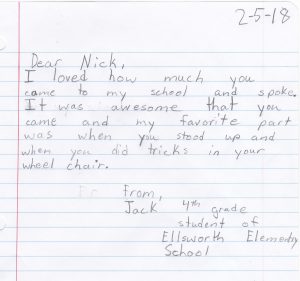 2-5-18
Dear Nick,
I loved how much you
came to my school and spoke.
It was awesome that you
came and my favorite part
was when you stood up and
when you did tricks in your
wheel chair.
From,
Jack 4th grade
student of
Ellsworth Elementry
School